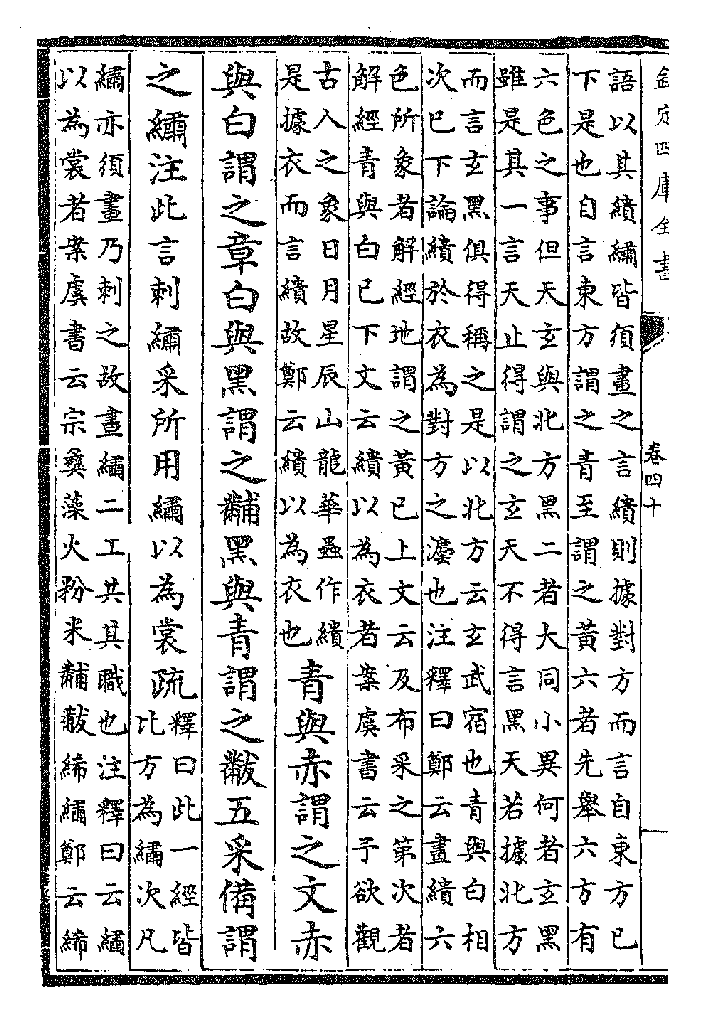 欽定四庫全書
卷四十
語以其繢繡皆須畫之言繢則據對方而言自東方已
下是也自言東方謂之青至謂之黃六者先舉六方有
六色之事但天玄與北方黑二者大同小異何者玄黑
雖是其一言天止得謂之玄天不得言黑天若據北方
而言玄黑俱得稱之是以北方云玄武宿也青與白相
次已下論繢於衣為對方之灋也注釋曰鄭云畫繢六
色所象者解經地謂之黃已上文云及布采之第次者
解經青與白已下文云繢以為衣者案虞書云予欲觀
古人之象日月星辰山龍華蟲作繢
是據衣而言繢故鄭云繢以為衣也
青與赤謂之文赤
與白謂之章白與黑謂之黼黑與青謂之黻五采備謂
之繡注此言刺繡采所用繡以為裳疏
釋曰此一經皆
比方為繡次凡
繡亦須畫乃刺之故畫繡二工共其職也注釋曰云繡
以為裳者案虞書云宗彝藻火粉米黼黻絺繡鄭云絺